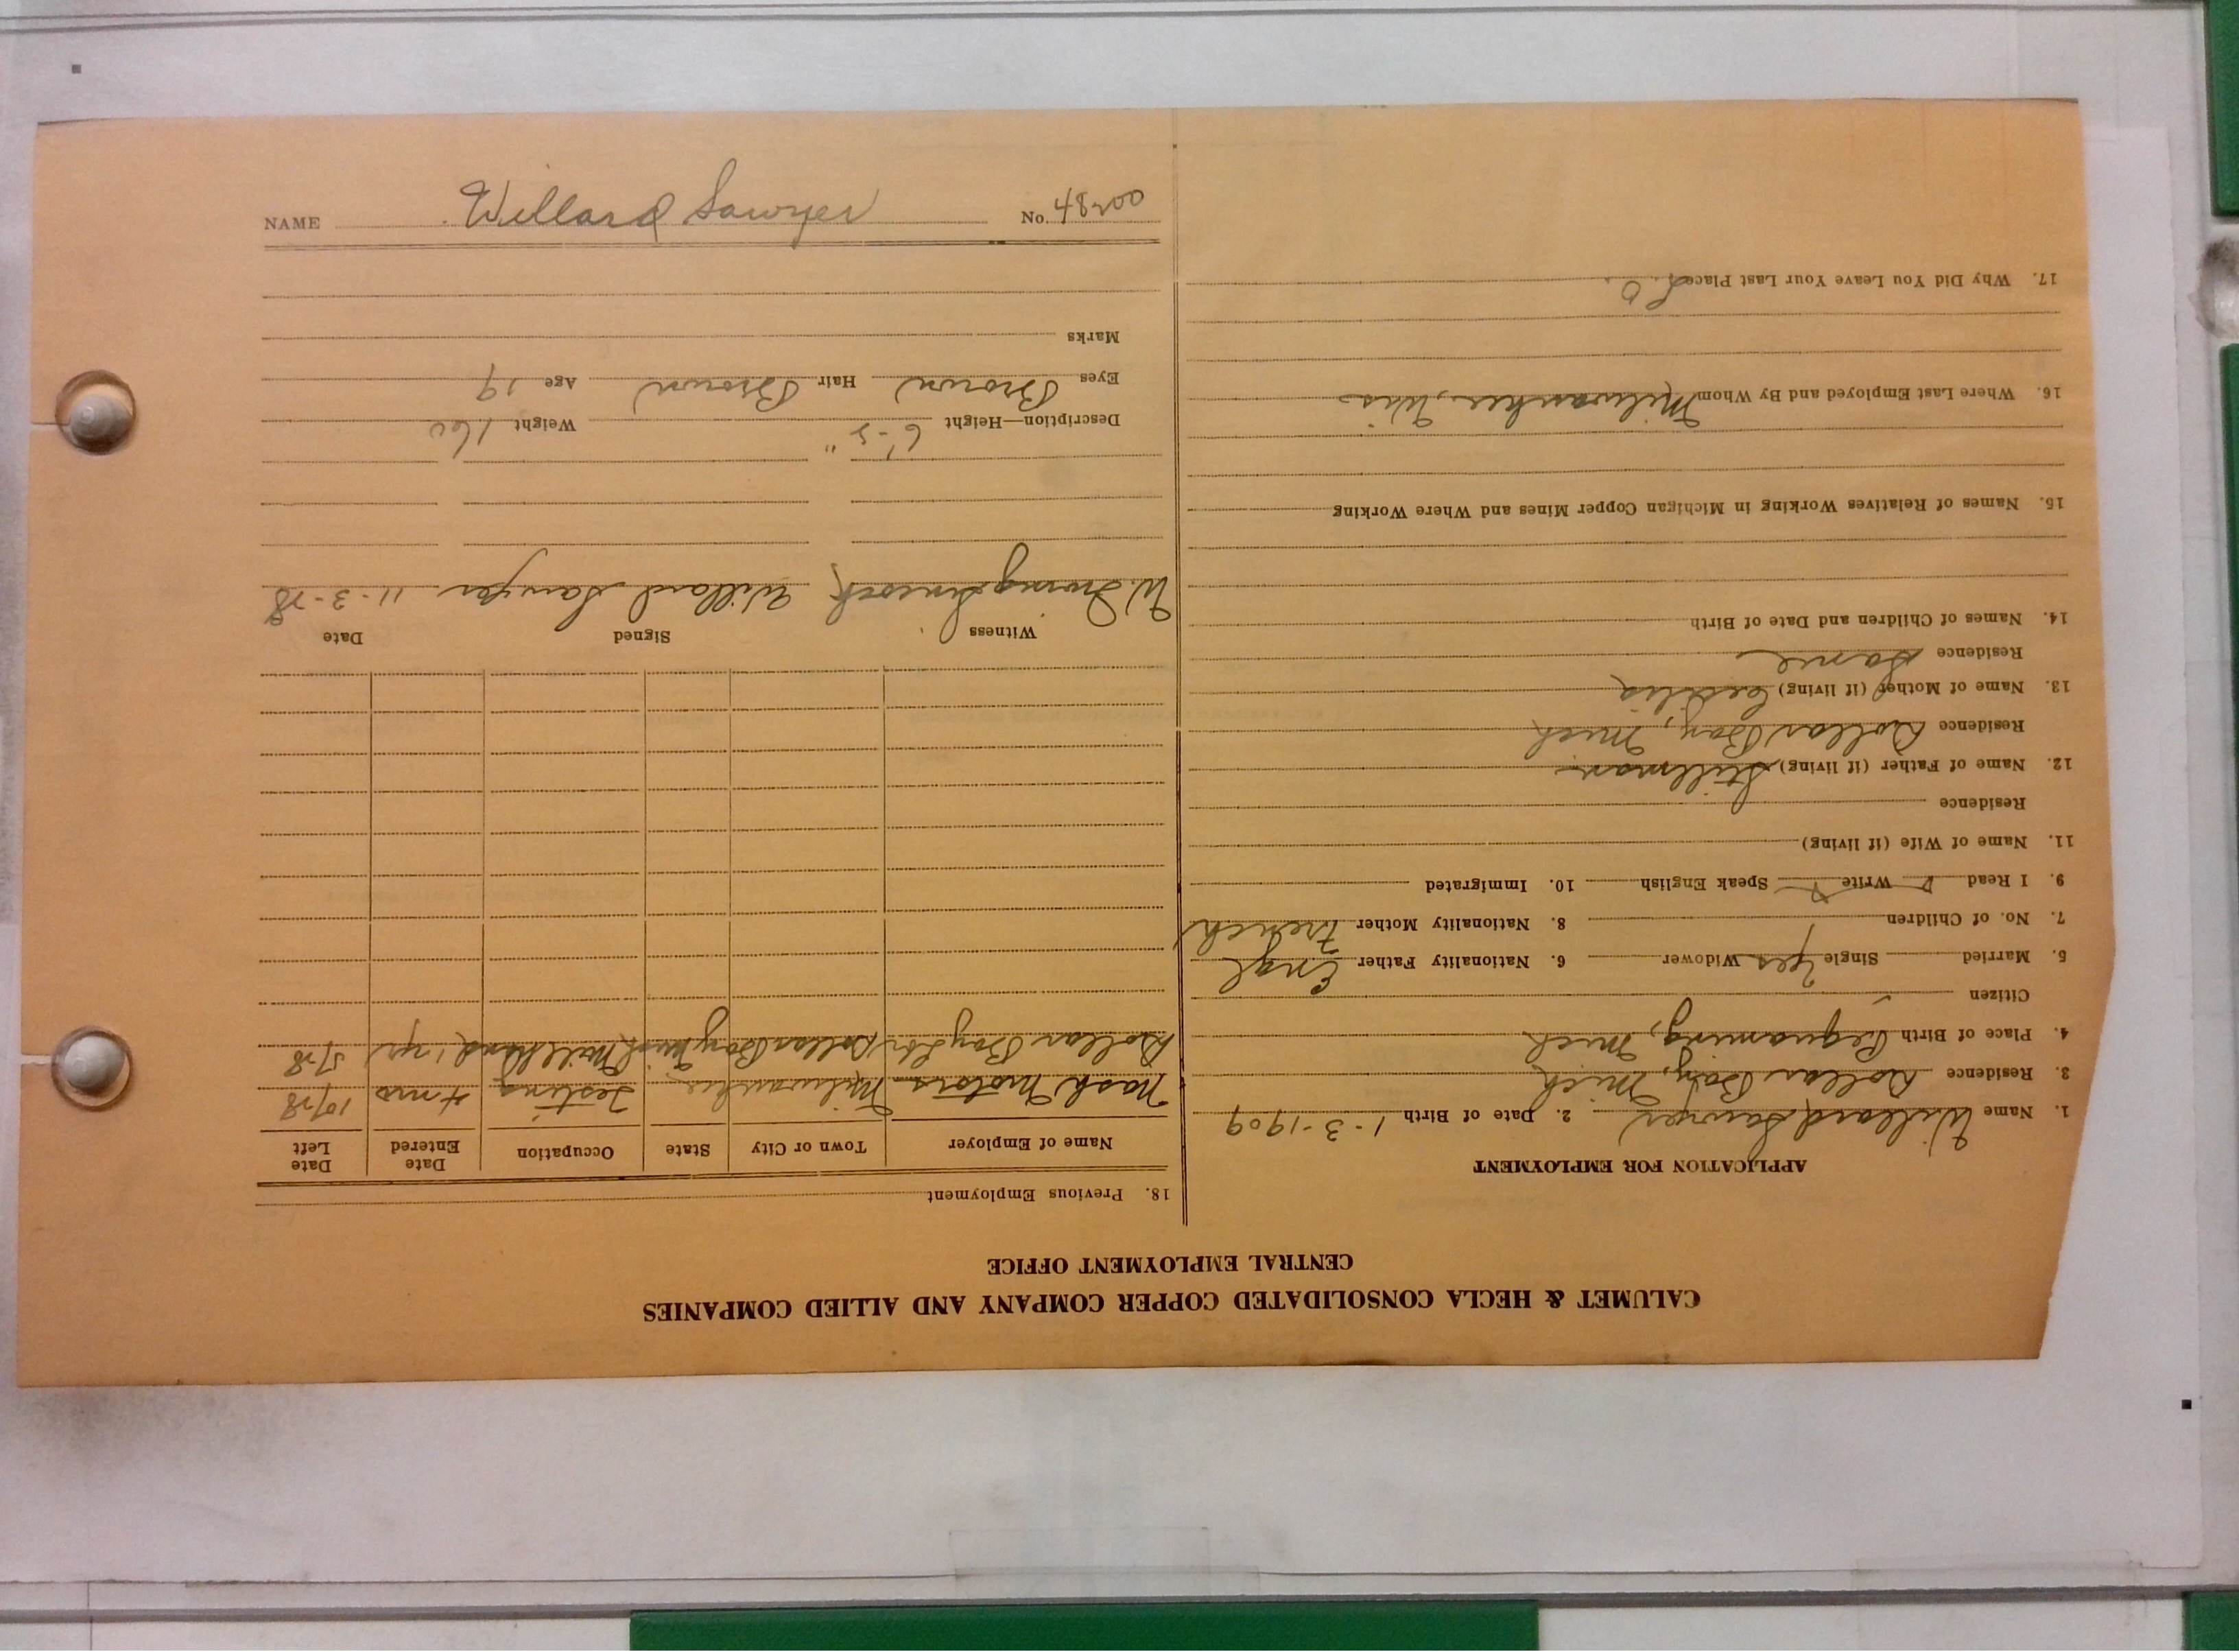 CALUMET & HECLA CONSOLIDATED COPPER COMPANY AND ALLIED COMPANIES
CENTRAL EMPLOYMENT OFFICE
APPLICATION FOR EMPLOYMENT
1. Name Willard Sawyer 2. Date of Birth 1-3-1909
3. Residence Dollar Bay, Mich
4. Place of Birth Pequaming, Mich
Citizen
5. Married Single Yes Widower 6. Nationality Father Engl
7. No. of Children 8. Nationality Mother French
9. I Read Write Speak English 10. Immigrated
11. Name of Wife (if living)
Residence
12. Name of Father (if living) Stillman
Residence Dollar Bay, Mich
13. Name of Mother (if living) Cedilia
Residence Same
14. Names of Children and Date of Birth
15. Names of Relatives Working in Michigan Copper Mines and Where Working
16. Where Last Employed and By Whom Milwaukee, Wis
17. Why Did You Leave Your Last Place L.O.
18. Previous Employment
Name of Employer Town or City State Occupation Date Entered Date Left
Nash Motors Milwaukee Testing 4 mos 10/28
Dollar Bay Dollar Bay Mich Mill hand 1 yr 5/28
Witness Signed Date
W. Willard Sawyer 11-3-28
Description—Height 6'-5" Weight 160
Eyes Brown Hair Brown Age 19
Marks
NAME Willard Sawyer No. 48200